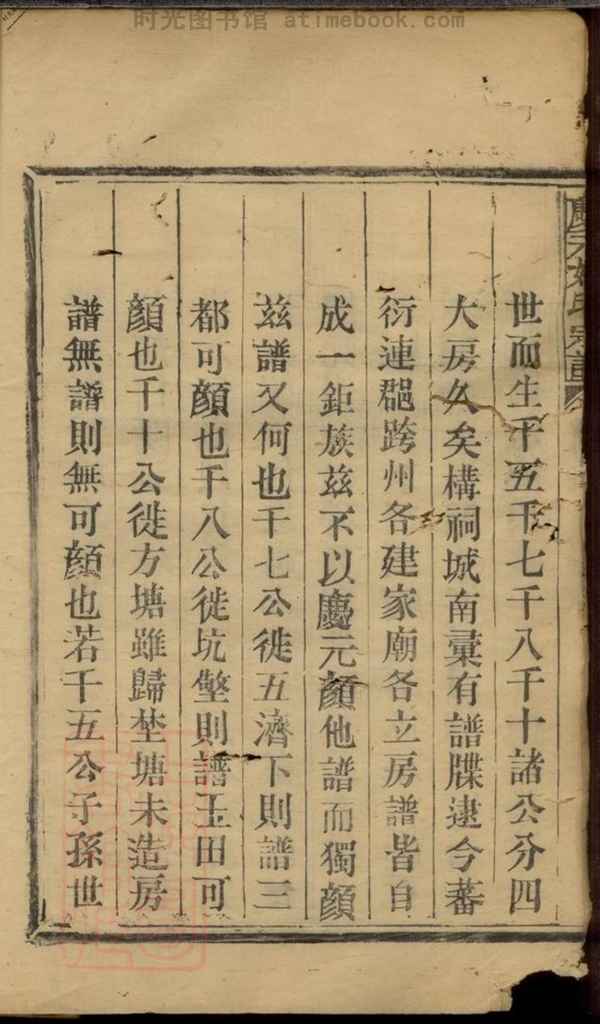 时光图书馆 atimebook.com
慶元姚氏宗譜
世而生千五千七千八千十諸公分四
大房久矣構祠城南彙有譜牒逮今蕃
衍連郒跨州各建家廟各立房譜皆自
成一鉅族茲不以慶元顔他譜而獨顔
茲譜又何也千七公徙五濟下則譜三
都可顔也千八公徙坑壂則譜玉田可
顔也千十公徙方塘雖歸埜塘未造房
譜無譜則無可顔也若千五公子孫世